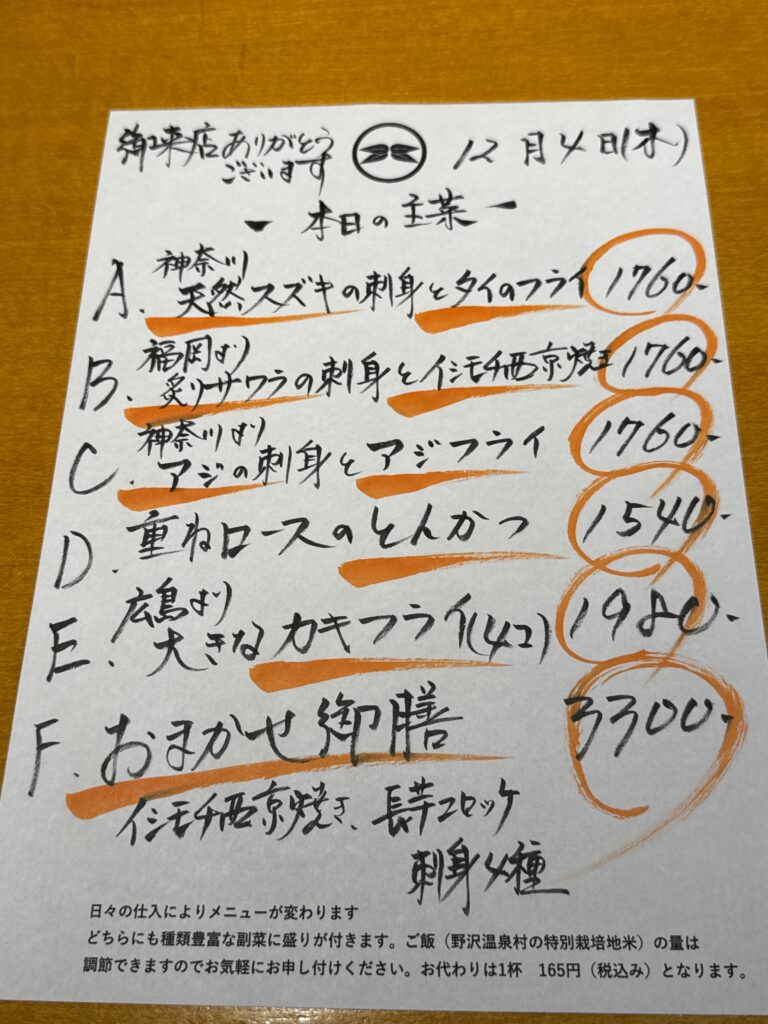 御来店ありがとう
ございます
12月4日(木)
本日の主菜
A. 神奈川
天然スズキの刺身とタイのフライ 1760-
B. 福岡より
炙りサワラの刺身とイシモチ西京焼き 1760-
C. 神奈川より
アジの刺身とアジフライ 1760-
D. 重ねロースのとんかつ 1540-
E. 広島より
大きなカキフライ(4コ) 1980-
F. おまかせ御膳 3300-
イシモチ西京焼き、長芋コロッケ
刺身4種
日々の仕入によりメニューが変わります
どちらにも種類豊富な副菜に盛りが付きます。ご飯（野沢温泉村の特別栽培地米）の量は
調節できますのでお気軽にお申し付けください。お代わりは1杯 165円（税込み）となります。